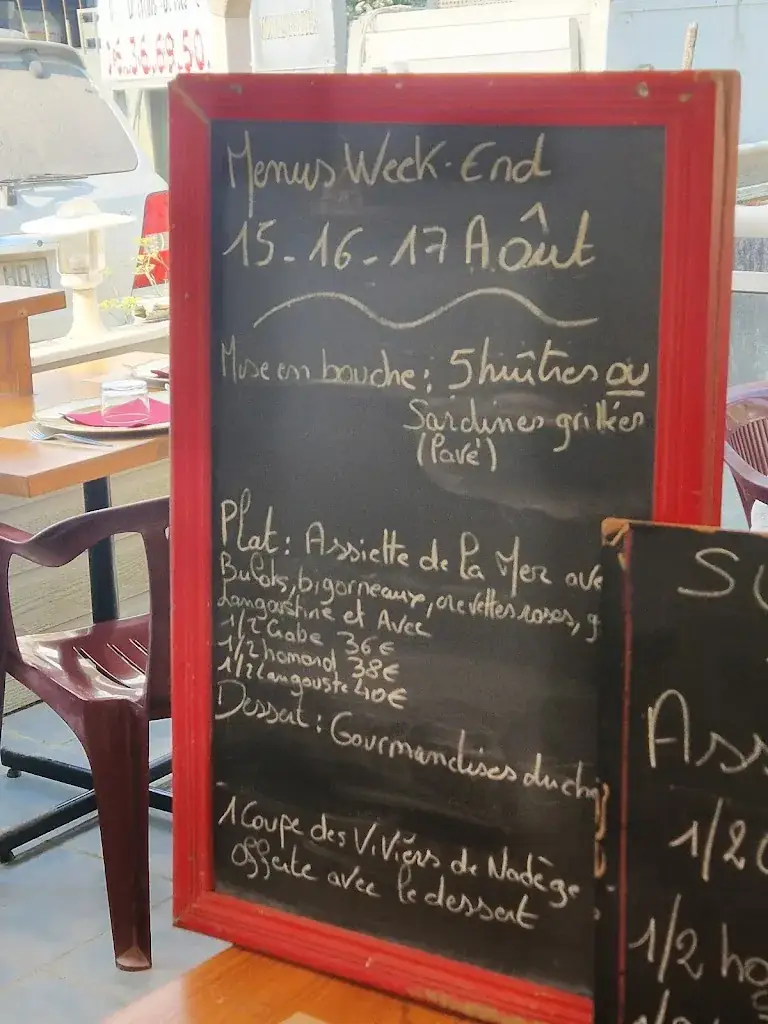 06.36.69.50.
Menus Week-End
15-16-17 Août
Mise en bouche: 5 huîtres ou
Sardines grillées
(Pavé)
Plat: Assiette de la Mer ave
Bulots, bigorneaux, crevettes roses, g
Langoustine et Avec
1/2 Crabe 36€
1/2 homard 38€
1/2 Langouste 40€
Dessert: Gourmandises du ch
1 Coupe des Viviers de Nadège
offerte avec le dessert
Ass
1/2
1/2 ho